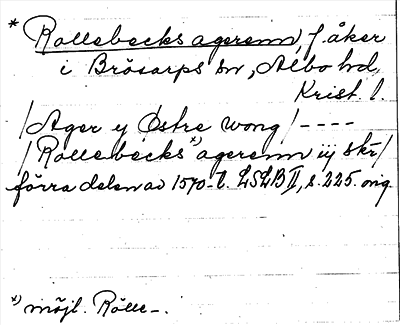 * Rollebecks agerenn, f. åker
i Brösarps sn, Albo hd,
Krist. l.
/Ager y Østre wong/ ----
/Rollebecks *) agerenn iij skr/
förra delen av 1570-t. LSLB II, s. 225. orig.
*) möjl. Rölle-.